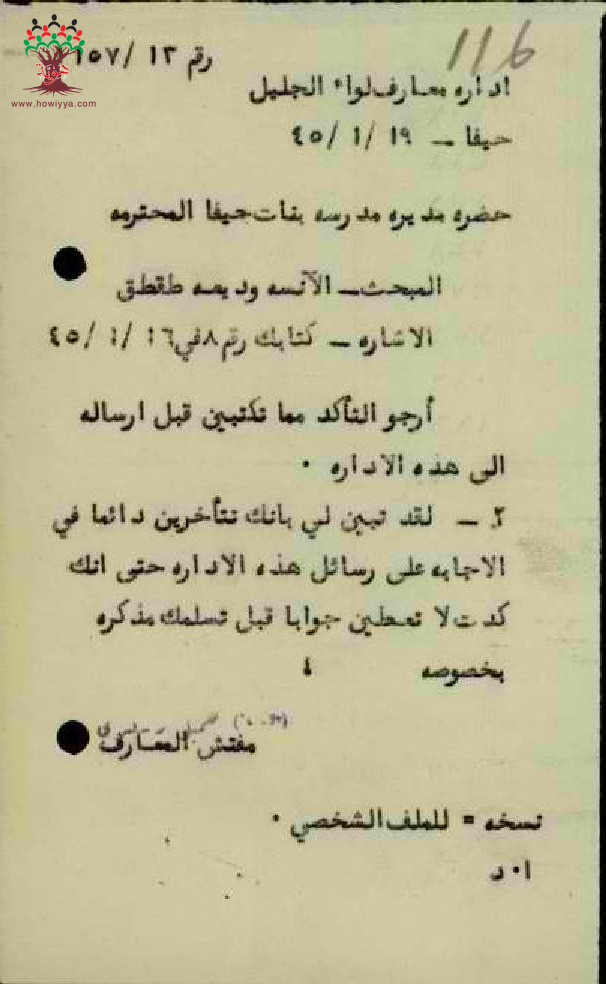 116
رقم ١٣ /١٥٧
www.howiyya.com
اداره معارف لواء الجليل
حيفا ــ ١٩ /١ /٤٥
حضره مديره مدرسه بنات حيفا المحترمه
المبحث ــ الآنسه وديعه طقطق
الاشاره ــ كتابك رقم ٨ في ١٦ /١ /٤٥
أرجو التأكد مما تكتبين قبل ارساله
الى هذه الاداره ٠
٢ ــ لقد تبين لي بانك تتأخرين دائما في
الاجابه على رسائل هذه الاداره حتى انك
كدت لا تعطين جوابا قبل تسلمك مذكره
بخصوصه
مفتش المعارف
نسخه = للملف الشخصي ٠
ا ٠ د